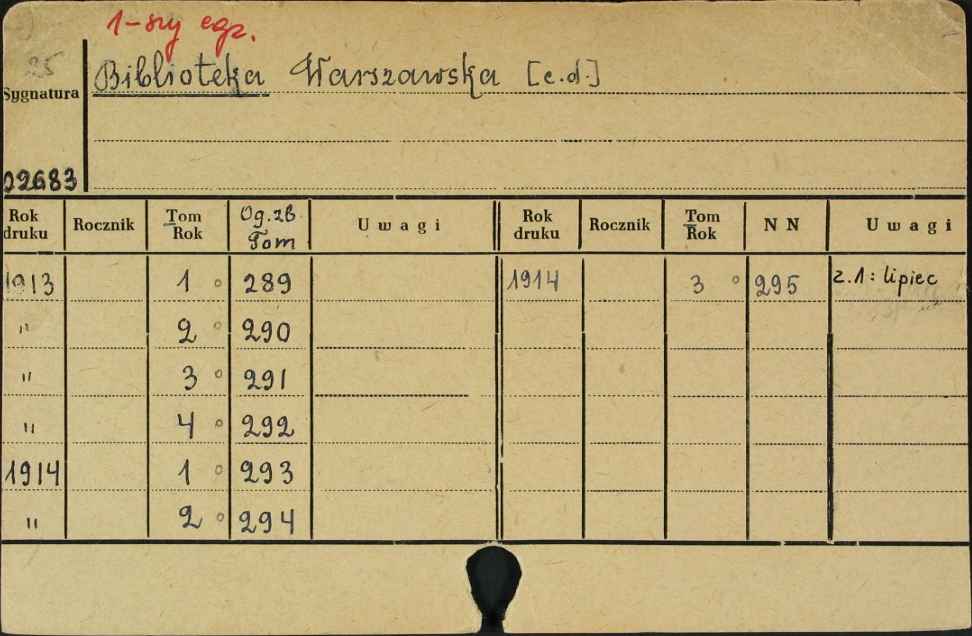 1-szy egz.
25
Biblioteka Warszawska [c.d.]
Sygnatura
02683
Rok druku Rocznik Tom Rok Og. zb. Tom Uwagi Rok druku Rocznik Tom Rok NN Uwagi
1913 1 289 1914 3 295 z.1: lipiec
" 2 290
" 3 291
" 4 292
1914 1 293
" 2 294